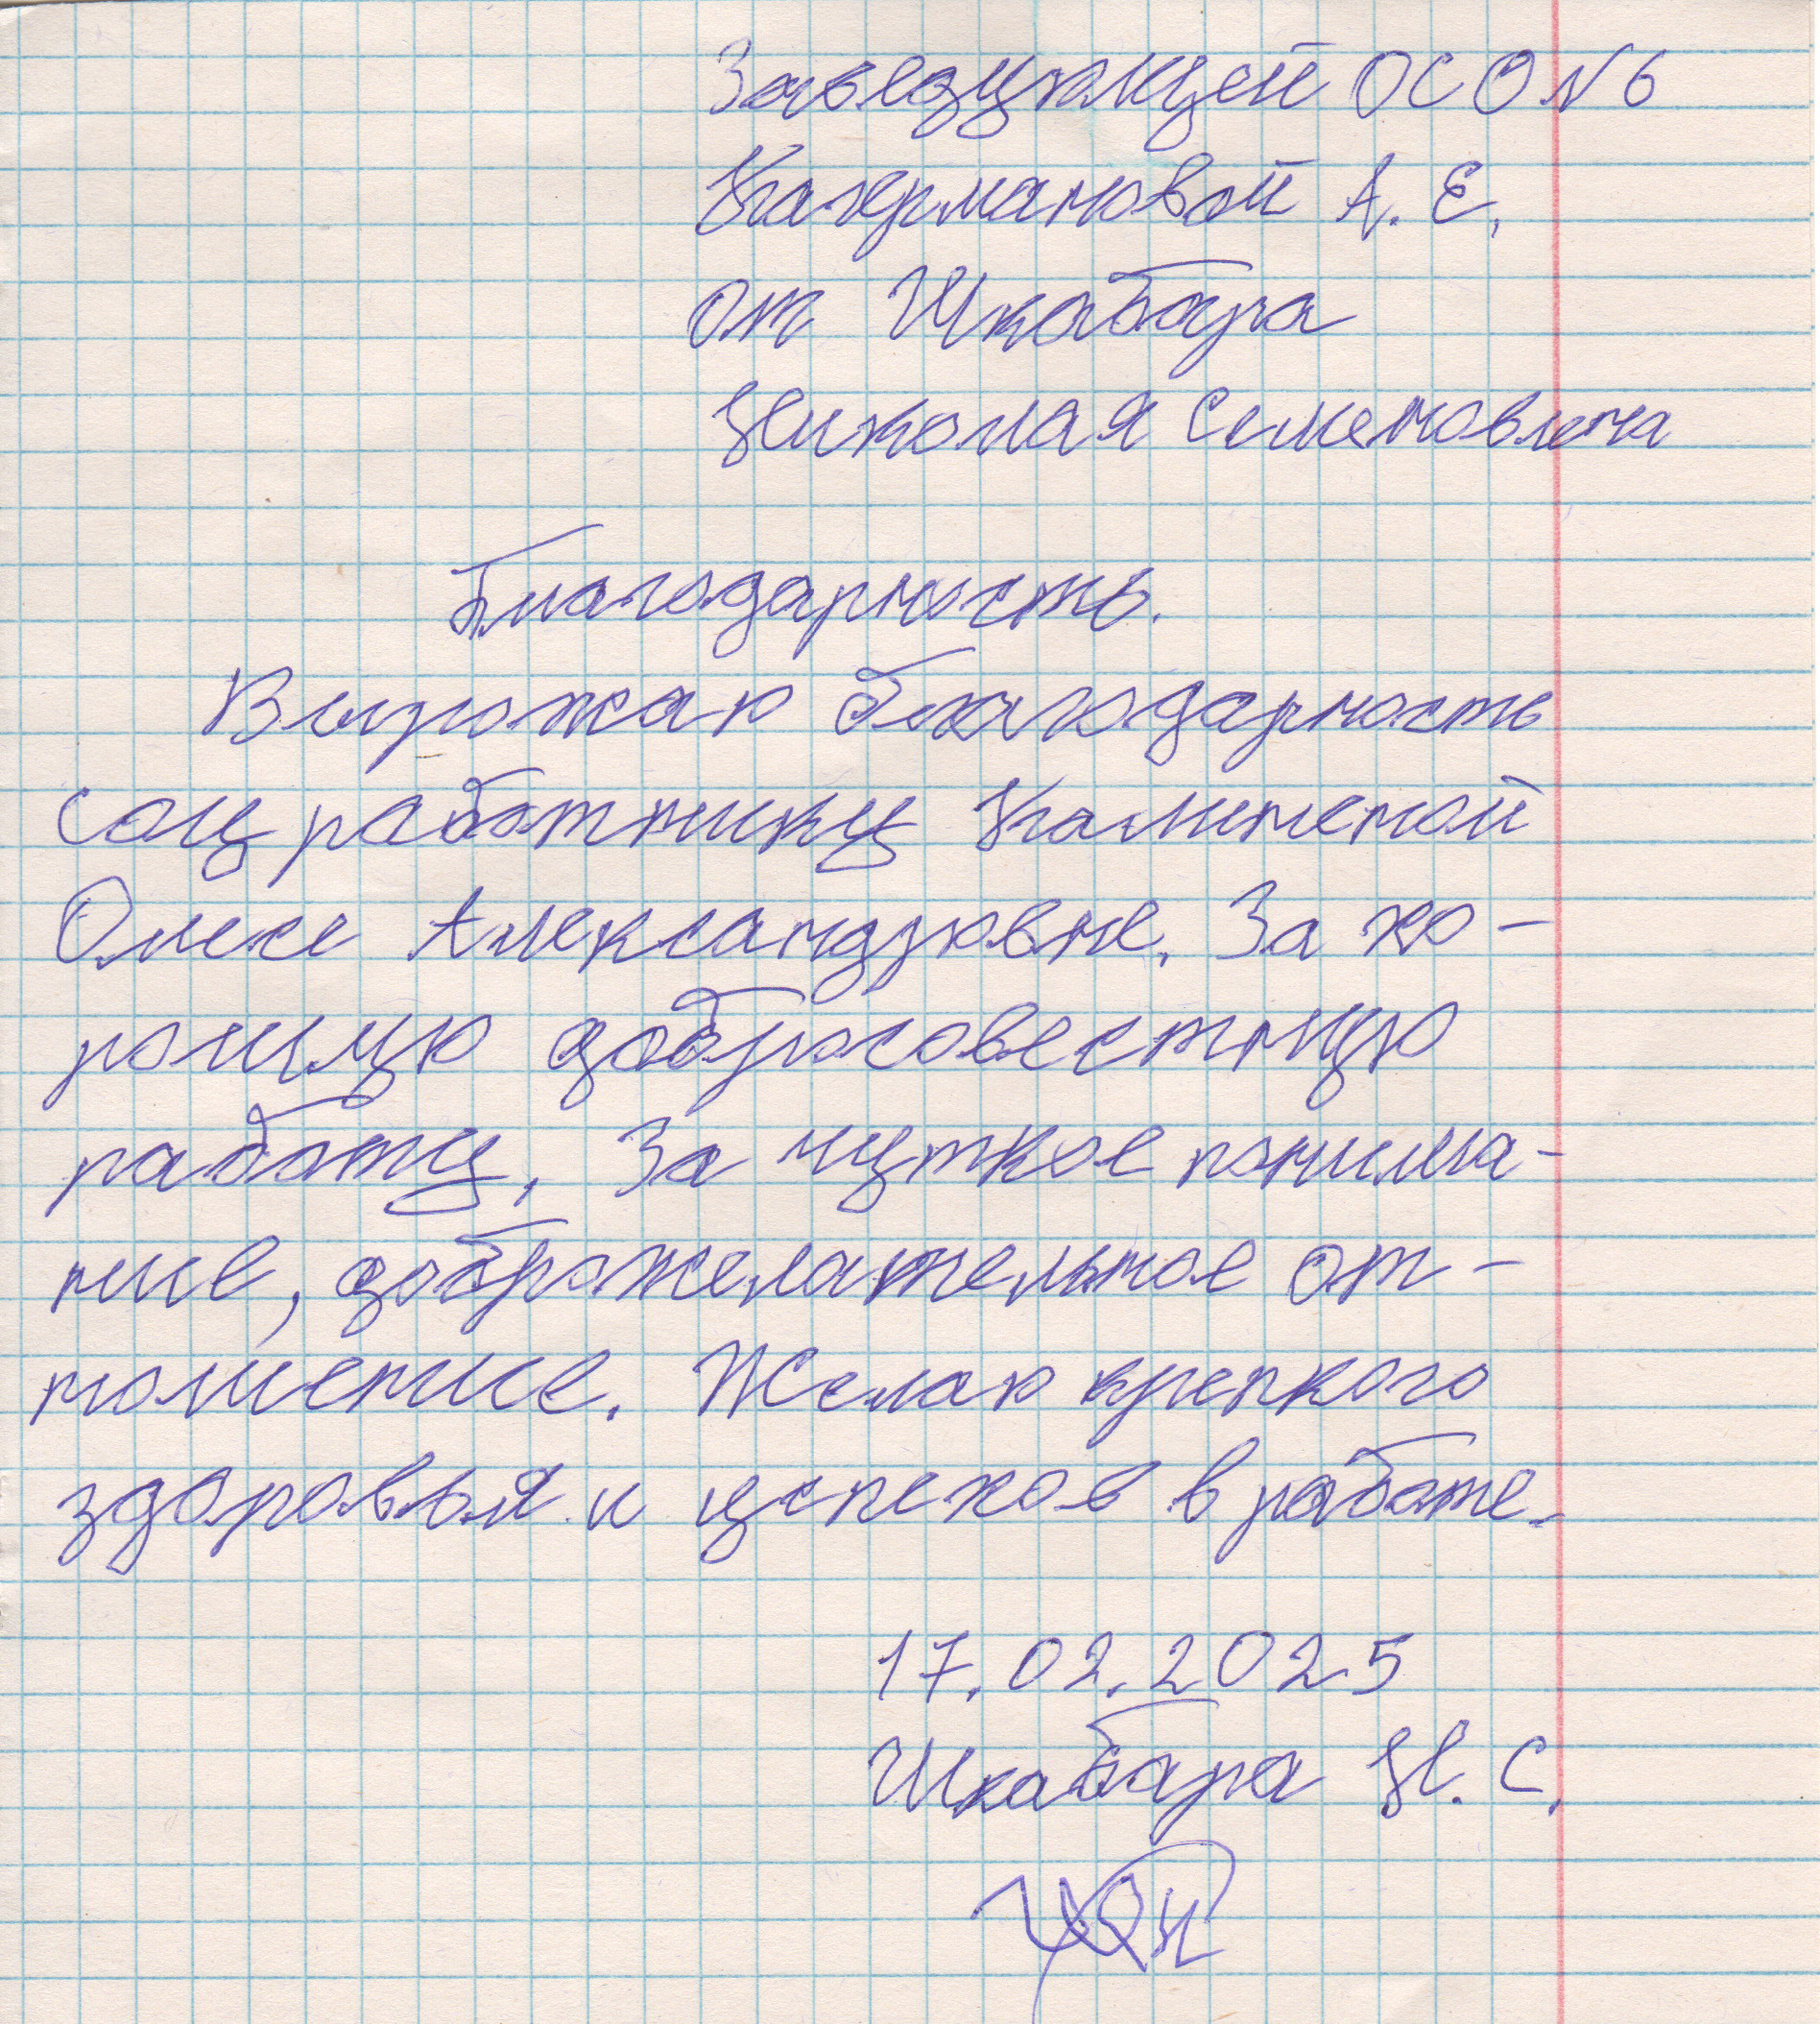 Заведующей ОСО N 6
Кагермановой А. Е.
от Шкабара
Николая Семеновича
Благодарность.
Выражаю благодарность
соц работнику Калитеной
Олесе Александровне. За хо-
рошую добросовестную
работу. За чуткое понима-
ние, доброжелательное от-
ношение. Желаю крепкого
здоровья и успехов в работе.
17.02.2025
Шкабара Н. С.